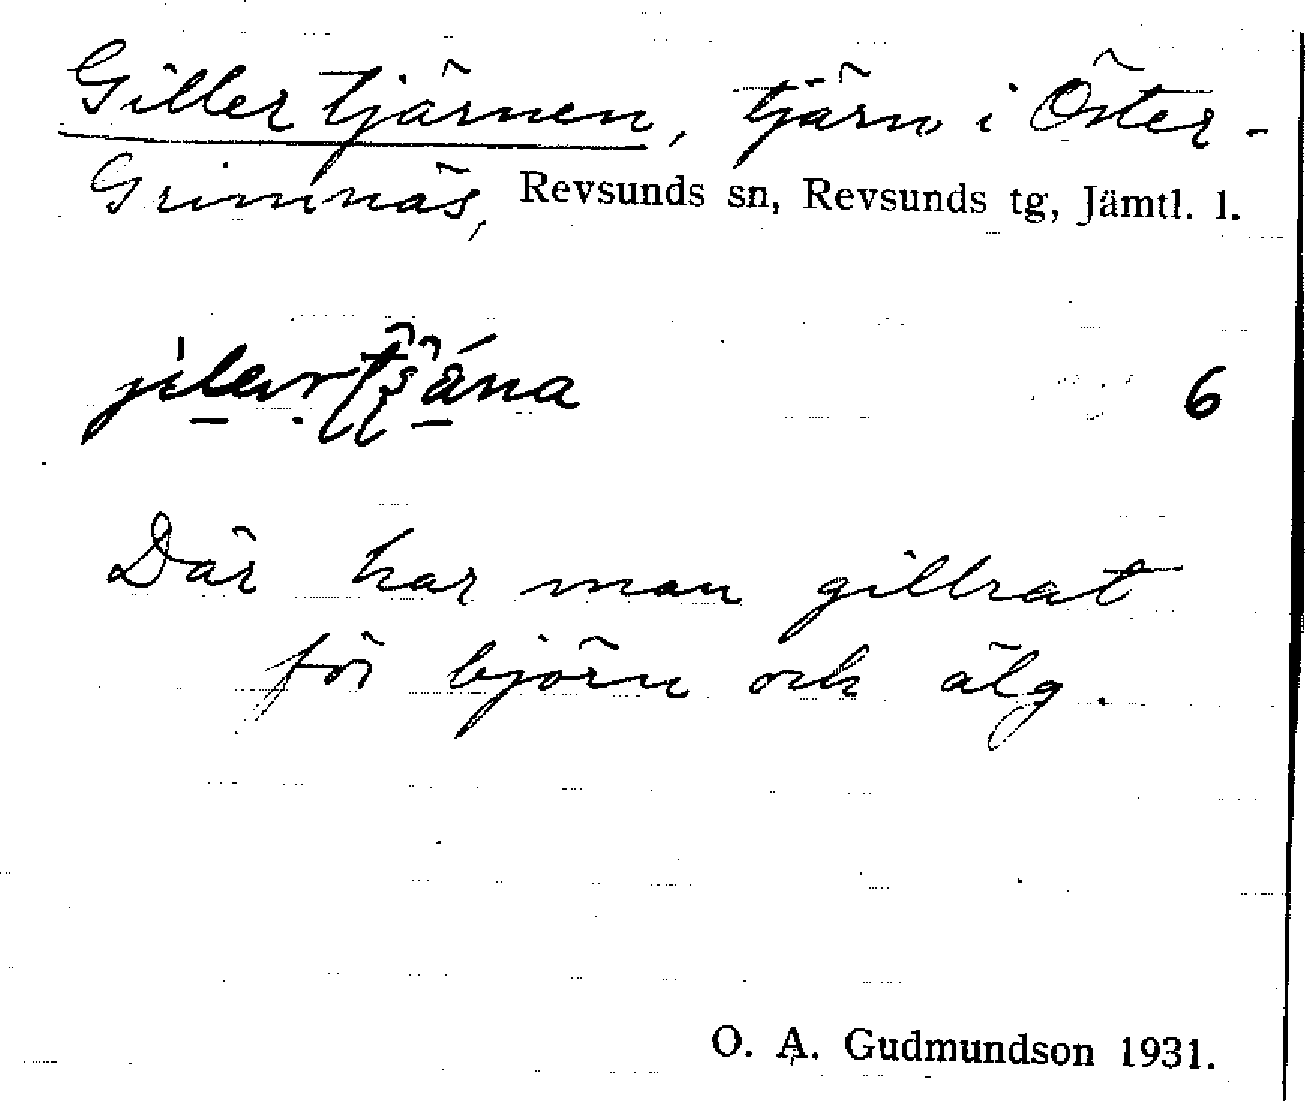 Gillertjärnen, tjärn i Öster-
Grimnäs, Revsunds sn, Revsunds tg, Jämtl. l.
6
Där har man gillrat
för björn och älg.
O. A. Gudmundson 1931.